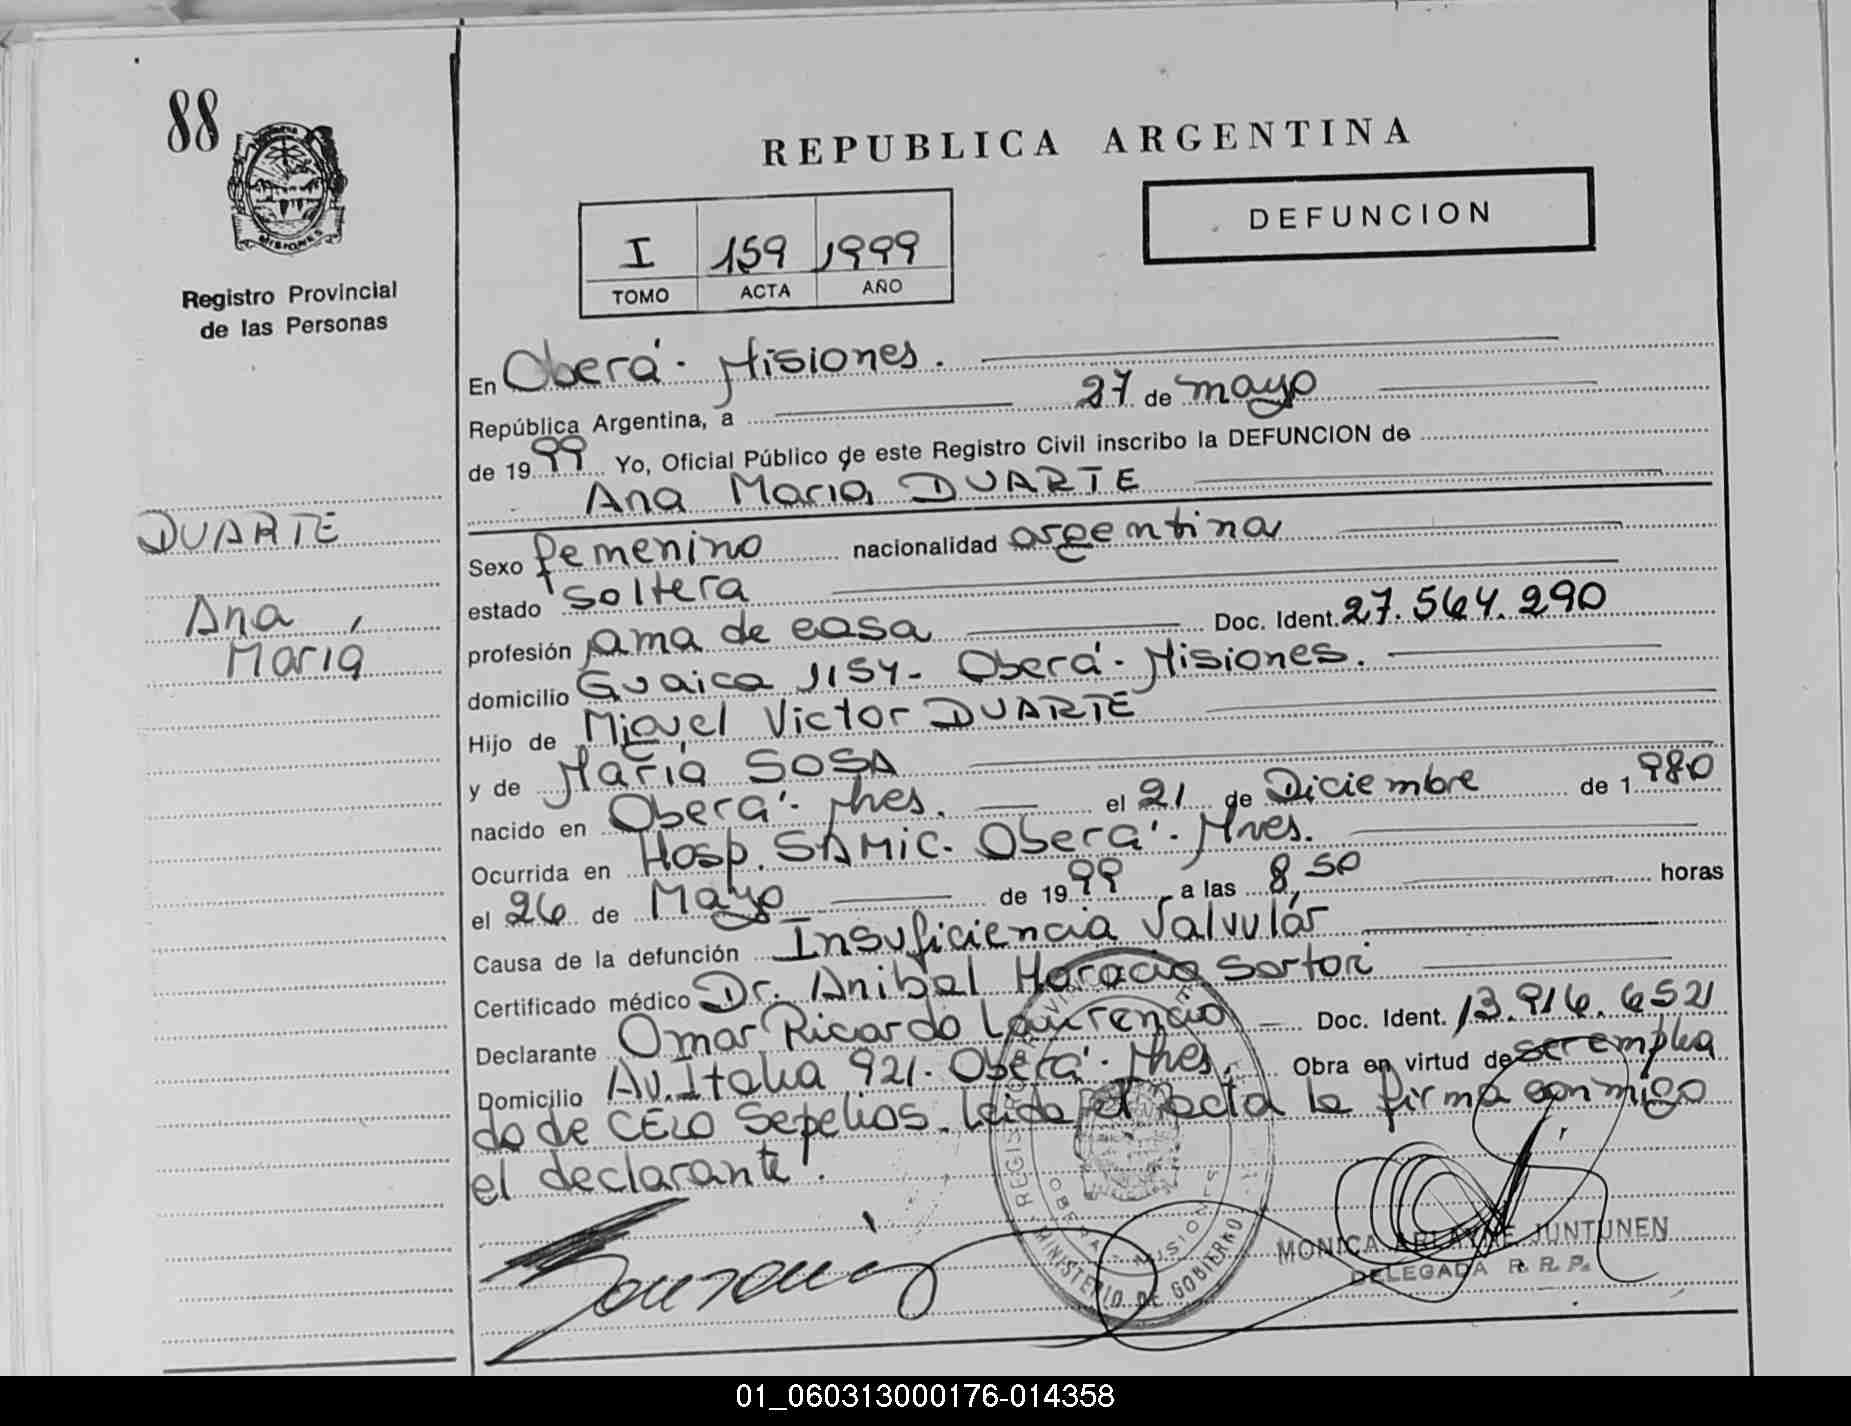 88
MISIONES
Registro Provincial
de las Personas
REPUBLICA ARGENTINA
DEFUNCION
I 159 1999
TOMO ACTA AÑO
En Oberá - Misiones.
República Argentina, a 27 de mayo
de 1999 Yo, Oficial Público de este Registro Civil inscribo la DEFUNCION de
Ana Maria DUARTE
DUARTE
Ana
María
Sexo femenino nacionalidad argentina
estado soltera
profesión ama de casa Doc. Ident. 27.564.290
domicilio Guaica 1154 - Oberá - Misiones.
Hijo de Miguel Victor DUARTE
y de María SOSA
nacido en Oberá - Mnes. el 21 de Diciembre de 1980
Ocurrida en Hosp. SAMIC. Oberá - Mnes.
el 26 de Mayo de 1999 a las 8,50 horas
Causa de la defunción Insuficiencia Valvulár
Certificado médico Dr. Anibal Horacio Sartori
Declarante Omar Ricardo Laurencio Doc. Ident. 13.916.6521
Domicilio Av. Italia 921 - Oberá - Mnes. Obra en virtud de ser emplea
do de CELO Sepelios. Leida el acta la firma conmigo
el declarante.
REGISTRO
OBERA - MISIONES
MINISTERIO DE GOBIERNO
MONICA JUNTUNEN
DELEGADA R. R. P.
01_060313000176-014358